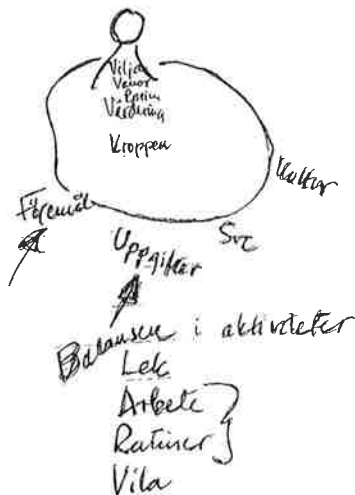 Viljan
Vanor
Värdering
Kroppen
Kultur
Föremål
Uppgifter
Balansen i aktiviteter
Lek
Arbete
Rutiner
Vila